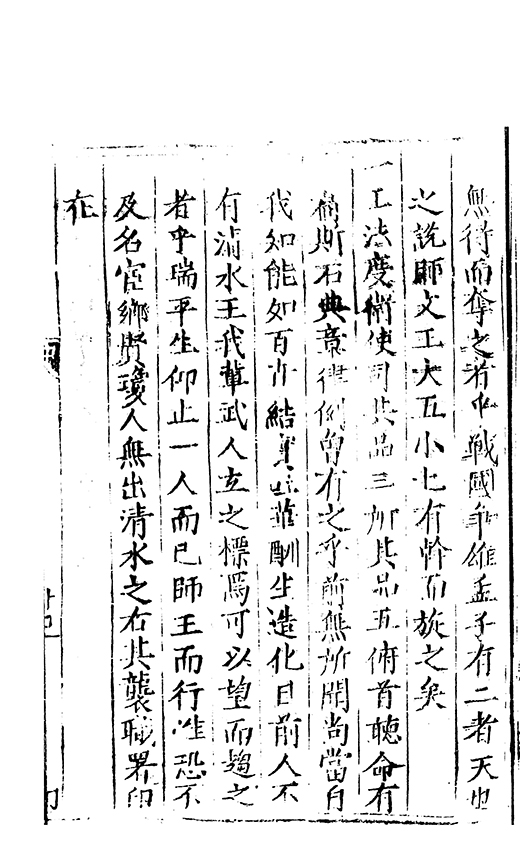 無得而奪之者也戰國爭雄孟子有二者天也
之說師文王大五小七有幹而旋之矣
一王法度衛使司其品三加其品五俯首聽命有
斯石典章律例曾有之乎前無所聞尚當自
我始能如百卉結實吐華酬生造化目前人不
有清水王我輩武人立之標焉可以望而趨之
者乎瑞平生仰止一人而已師王而行惟恐不
及名宦鄉賢瓊人無出清水之右其襲職署印
在